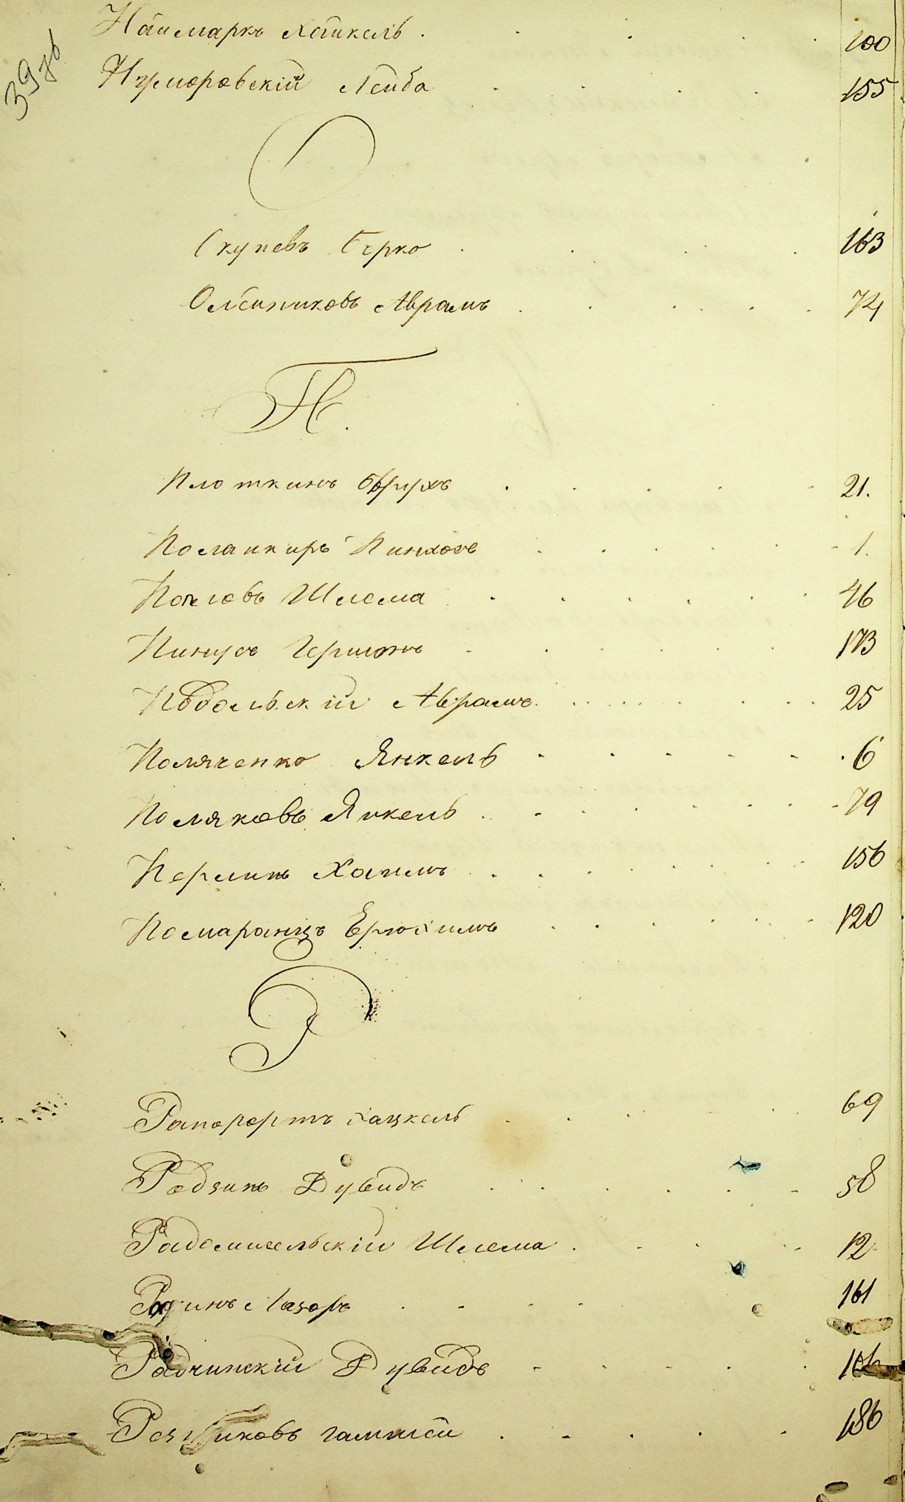 Наймаркъ Хайкель 100
39 об
Нумеровскій Лейба 155
О
Окуневъ Берко 163
Олейниковъ Аврамъ 74
П
Плоткинъ Брухъ 21.
Пинхосъ 1.
Поповъ Шлема 46
Пинусъ Гершонъ 173
Подольскій Аврамъ 25
Поляченко Янкель 6
Поляковъ Янкель 79
Перлинъ Хаимъ 156
Помаранцъ Ерюхимъ 120
Р
Рапорортъ Хацкель 69
Родзинъ Дувидъ 58
Радомисельскій Шлема 12
Лазоръ 161
Рабчинскій Дувидъ
Резниковъ 186